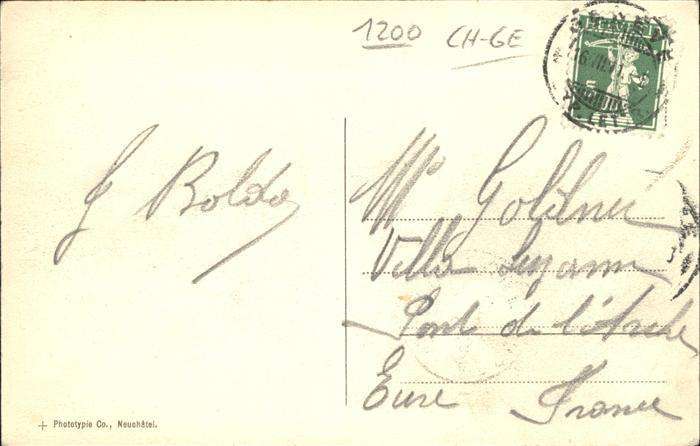 1200 CH-GE
HELVETIA
5
G Boldo
Mr Goldner
Villa Suzann
Pont de l'Arche
Eure France
+ Phototypie Co., Neuchâtel.